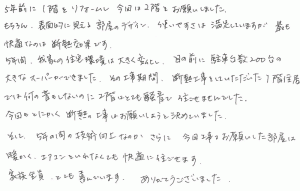 5年前に1階をリフォームし 今回は2階をお願いしました。
もちろん、表面的に見える部屋のデザイン、使いやすさは満足していますが 最も
快適なのは断熱効果です。
5年間、我家の住宅環境は大きく変化し、目の前に駐車台数200台の
大きなスーパーができました。その工事期間、断熱工事をしていただいた1階住居
では何の音もしないのに2階はとても騒音で住めませんでした。
今回もとにかく断熱の工事はお願いしようと決めていました。
そして、5年の間の技術向上なのか さらに 今回工事をお願いした部屋は
暖かく、エアコンといれなくても快適に住ごせます。
家族全員、とても喜んでいます。 ありがとうございました。